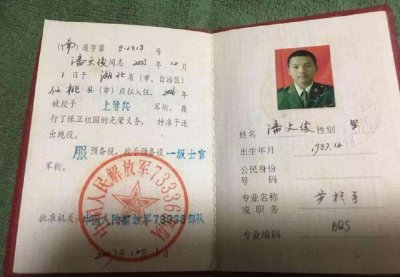 (南)退字第 号
潘文俊同志 2005年12月
1日于 湖北省(市、自治区)
仙桃县(市)应征入伍,
被授予 上等兵 军衔,履
行了保卫祖国的光荣义务,特准予退
出现役。
服预备役,授予预备役 一级士官
军衔。
批准机关:中国人民解放军73336部队
2007年12月1日
中国人民解放军73336部队
姓名 潘文俊 性别 男
出生年月 1987.12
公民身份
号码
专业名称
或职务
专业编码